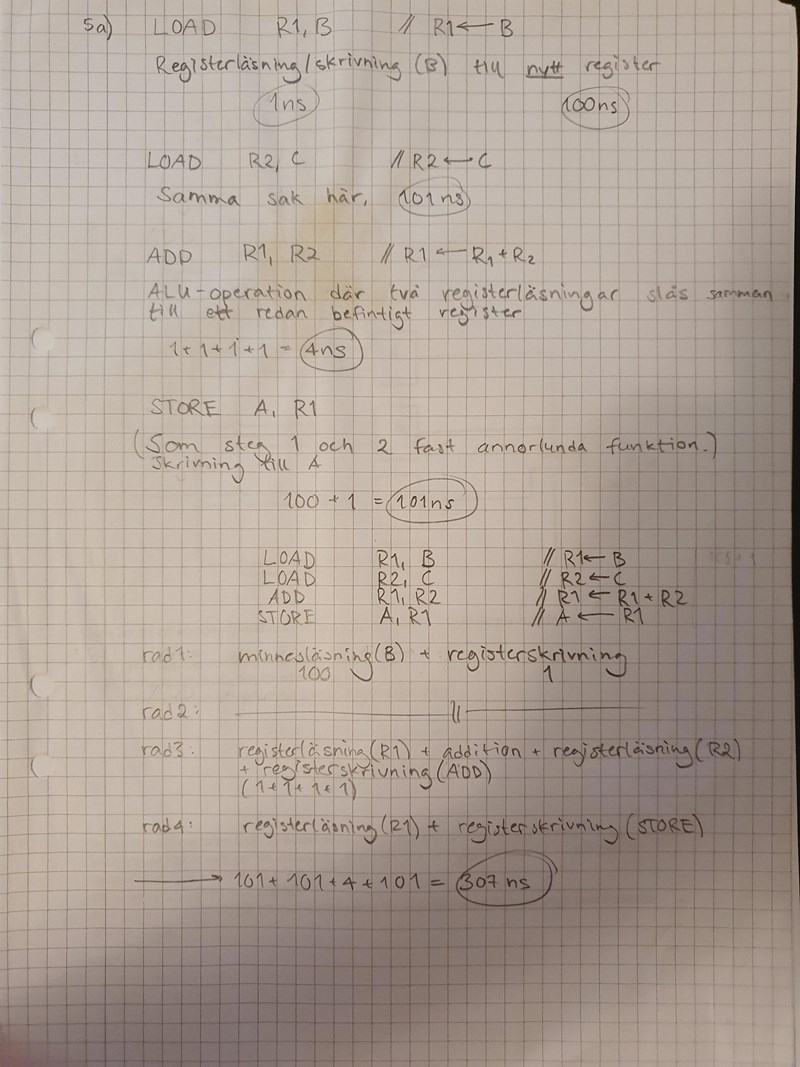 5a) LOAD R1, B // R1 ← B
Registerläsning/skrivning (B) till nytt register
1ns 100ns
LOAD R2, C // R2 ← C
Samma sak här, 101ns
ADD R1, R2 // R1 ← R1 + R2
ALU-operation där två registerläsningar slås samman
till ett redan befintigt register
1 + 1 + 1 + 1 = 4ns
STORE A, R1
(Som steg 1 och 2 fast annorlunda funktion.)
Skrivning till A
100 + 1 = 101ns
LOAD R1, B // R1 ← B
LOAD R2, C // R2 ← C
ADD R1, R2 // R1 ← R1 + R2
STORE A, R1 // A ← R1
rad1: minnesläsning(B) + registerskrivning
100 1
rad2: —— // ——
rad3: registerläsning(R1) + addition + registerläsning(R2)
+ registerskrivning(ADD)
(1 + 1 + 1 + 1)
rad4: registerläsning(R1) + registerskrivning(STORE)
→ 101 + 101 + 4 + 101 = 307 ns